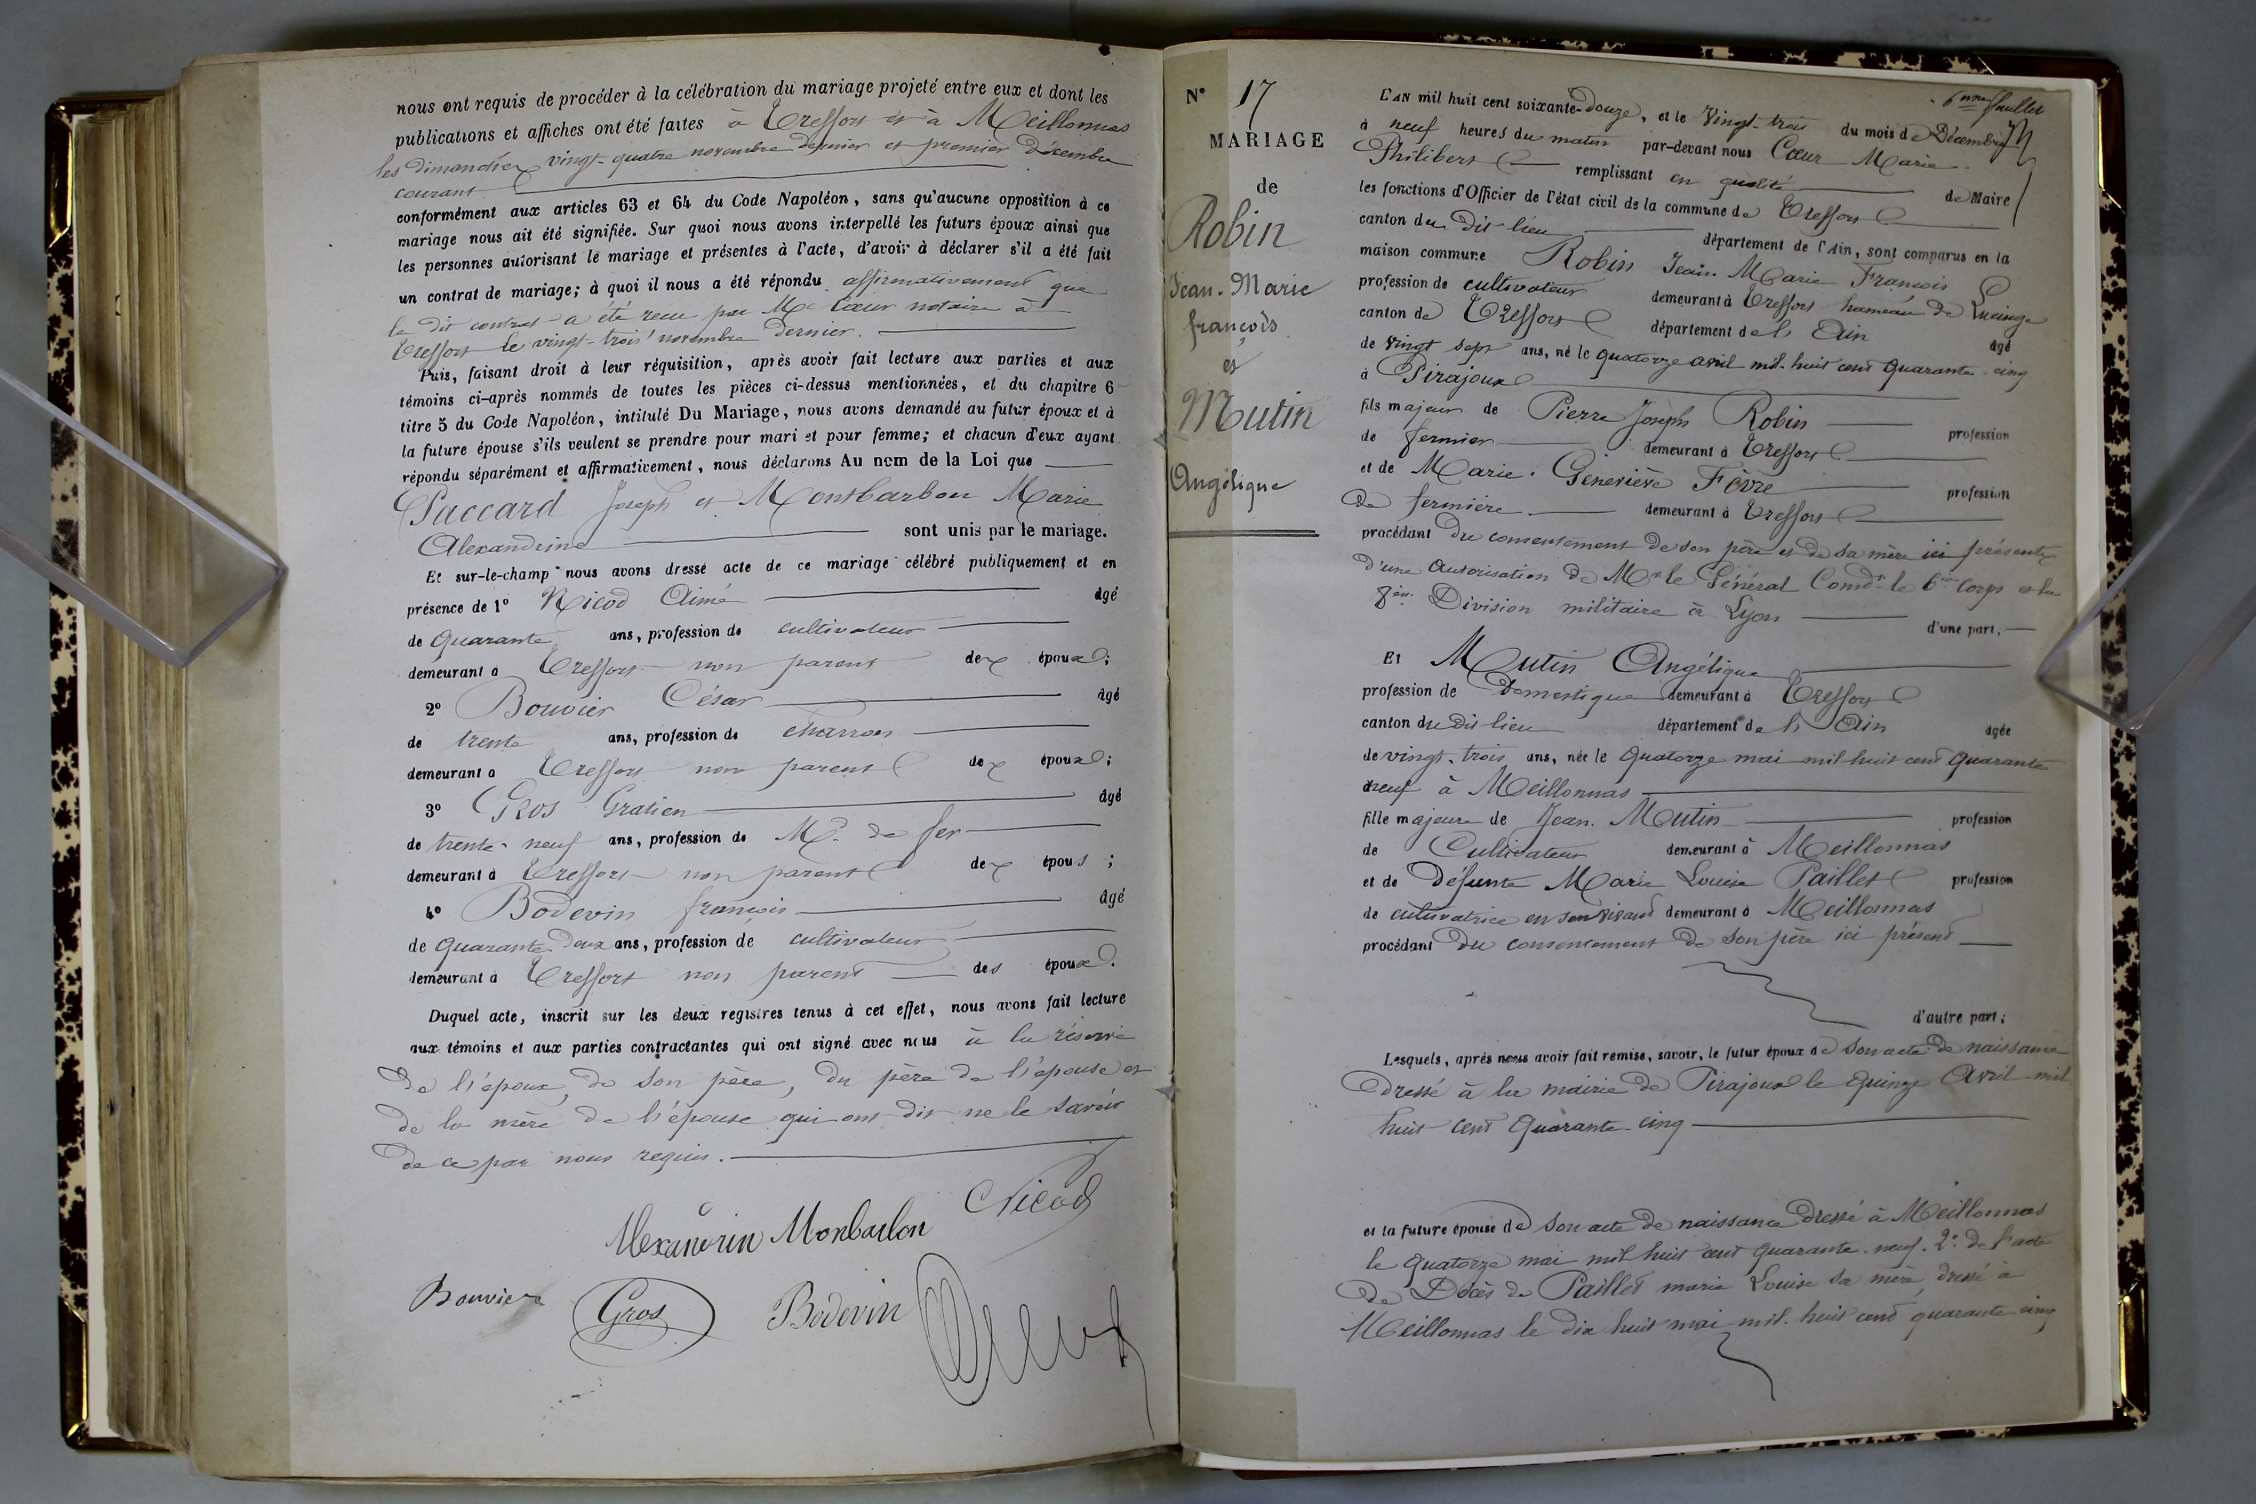 nous ont requis de procéder à la célébration du mariage projeté entre eux et dont les
publications et affiches ont été faites à Treffort et à Meillonnas
les dimanches vingt-quatre novembre dernier et premier Décembre
courant
conformément aux articles 63 et 64 du Code Napoléon, sans qu'aucune opposition à ce
mariage nous ait été signifiée. Sur quoi nous avons interpellé les futurs époux ainsi que
les personnes autorisant le mariage et présentes à l'acte, d'avoir à déclarer s'il a été fait
un contrat de mariage; à quoi il nous a été répondu affirmativement que
le dit contrat a été reçu par Me Cœur notaire à
Treffort le vingt-trois novembre dernier.
Puis, faisant droit à leur réquisition, après avoir fait lecture aux parties et aux
témoins ci-après nommés de toutes les pièces ci-dessus mentionnées, et du chapitre 6
titre 5 du Code Napoléon, intitulé Du Mariage, nous avons demandé au futur époux et à
la future épouse s'ils veulent se prendre pour mari et pour femme; et chacun d'eux ayant
répondu séparément et affirmativement, nous déclarons Au nom de la Loi que
Paccard Joseph et Montbarbon Marie
Alexandrine sont unis par le mariage.
Et sur-le-champ nous avons dressé acte de ce mariage célébré publiquement et en
présence de 1° Nicod Aimé âgé
de quarante ans, profession de cultivateur
demeurant à Treffort non parent des époux;
2° Bouvier César âgé
de trente ans, profession de charron
demeurant à Treffort non parent des époux;
3° Gros Gratien âgé
de trente-neuf ans, profession de Md. de fer
demeurant à Treffort non parent des époux;
4° Bodevin françois âgé
de quarante deux ans, profession de cultivateur
demeurant à Treffort non parent des époux.
Duquel acte, inscrit sur les deux registres tenus à cet effet, nous avons fait lecture
aux témoins et aux parties contractantes qui ont signé avec nous à la réserve
de l'époux, de son père, du père de l'épouse et
de la mère de l'épouse qui ont dit ne le savoir
de ce par nous requis.
Nicod
Alexandrin Monbarbon
Bouvier Gros Bodevin
N° 17
MARIAGE
de
Robin
Jean-Marie
françois
et
Mutin
Angélique
6me feuillet
L'AN mil huit cent soixante-douze, et le Vingt-trois du mois de Décembre
à neuf heures du matin par-devant nous Cœur Marie
Philibert remplissant en qualité de Maire
les fonctions d'Officier de l'état civil de la commune de Treffort
canton du Dit lieu département de l'Ain, sont comparus en la
maison commune Robin Jean Marie François
profession de cultivateur demeurant à Treffort hameau de Lucinge
canton de Treffort département de l'Ain âgé
de vingt sept ans, né le quatorze avril mil-huit cent quarante-cinq
à Pirajoux
fils majeur de Pierre Joseph Robin profession
de fermier demeurant à Treffort
et de Marie Geneviève Fèvre profession
de fermière demeurant à Treffort
procédant du consentement de son père et de sa mère ici présents
d'une autorisation de Mr le Général Comdt le 6me Corps et la
8me Division militaire à Lyon d'une part,
Et Mutin Angélique
profession de Domestique demeurant à Treffort
canton du dit lieu département de l'Ain âgée
de vingt-trois ans, née le quatorze mai mil huit cent quarante
neuf à Meillonnas
fille majeure de Jean Mutin profession
de Cultivateur demeurant à Meillonnas
et de défunte Marie Louise Paillet profession
de cultivatrice en son vivant demeurant à Meillonnas
procédant du consentement de son père ici présent
d'autre part;
Lesquels, après nous avoir fait remise, savoir, le futur époux de son acte de naissance
dressé à la mairie de Pirajoux le quinze Avril mil
huit cent quarante-cinq
et la future épouse de son acte de naissance dressé à Meillonnas
le quatorze mai mil huit cent quarante-neuf. 2° de l'acte
de Décès de Paillet marie Louise sa mère, dressé à
Meillonnas le dix huit mai mil-huit cent quarante cinq